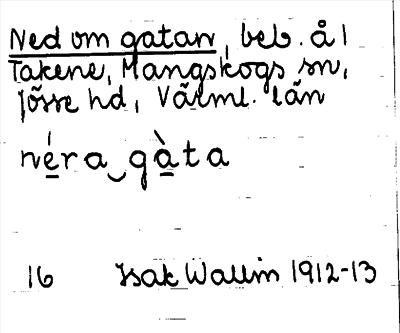 Ned om gatan, beb. å 1
Takene, Mangskogs sn,
Jösse hd, Värml. län
néra‿gàta
16 Isak Wallin 1912-13